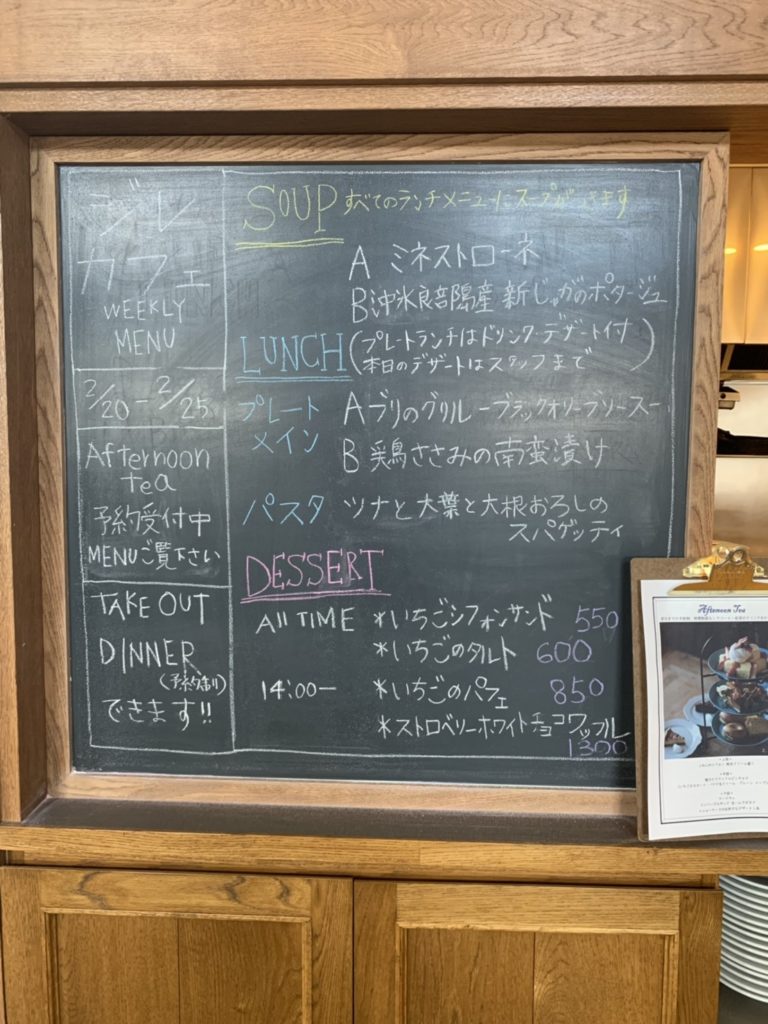 ジレ
カフェ
WEEKLY
MENU
2/20-2/25
Afternoon
tea
予約受付中
MENUご覧下さい
TAKE OUT
DINNER
(予約制)
できます!!
SOUP すべてのランチメニューにスープがつきます
A ミネストローネ
B 沖永良部島産 新じゃがのポタージュ
LUNCH (プレートランチはドリンク・デザート付
本日のデザートはスタッフまで)
プレート
メイン
A ブリのグリル ーブラックオリーブソースー
B 鶏ささみの南蛮漬け
パスタ ツナと大葉と大根おろしの
スパゲッティ
DESSERT
All TIME *いちごシフォンサンド 550
*いちごのタルト 600
14:00- *いちごのパフェ 850
*ストロベリーホワイトチョコワッフル
1300
Afternoon Tea